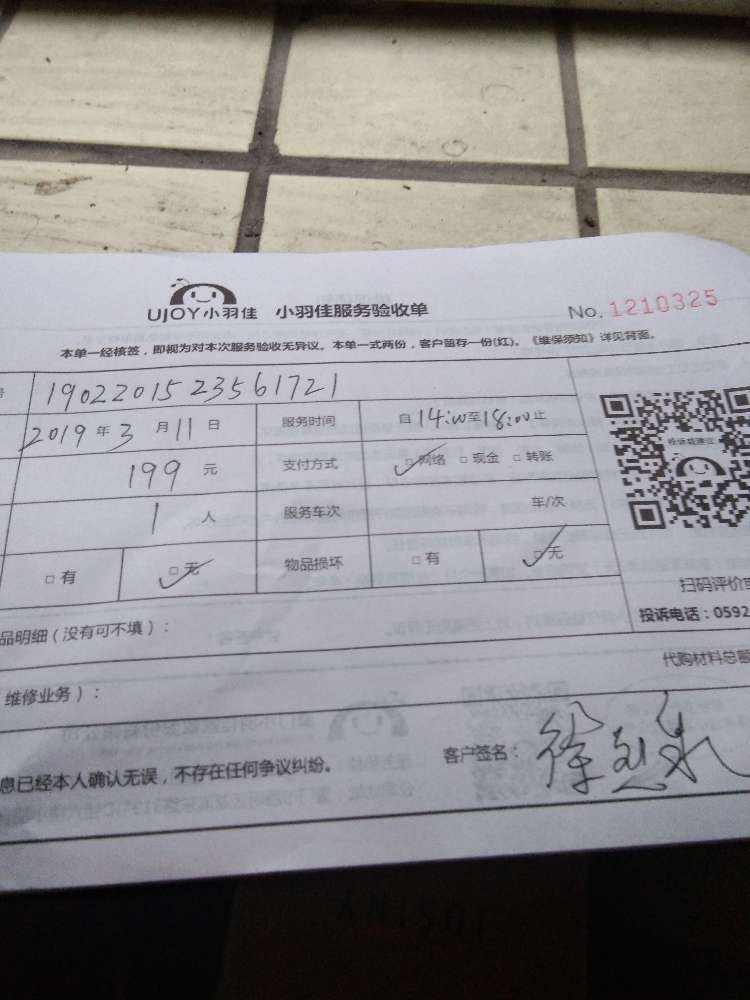 UJOY小羽佳 小羽佳服务验收单 No. 1210325
本单一经核签，即视为对本次服务验收无异议。本单一式两份，客户留存一份(红)。《维保须知》详见背面。
号 1902201523561721
2019 年 3 月 11 日 服务时间 自 14:00 至 18:00 止
199 元 支付方式 □网络 □现金 □转账
投诉或建议
1 人 服务车次 车/次
□有 □无 物品损坏 □有 □无
扫码评价或
品明细（没有可不填）： 投诉电话：0592
代购材料总额
维修业务）：
息已经本人确认无误，不存在任何争议纠纷。 客户签名： 徐